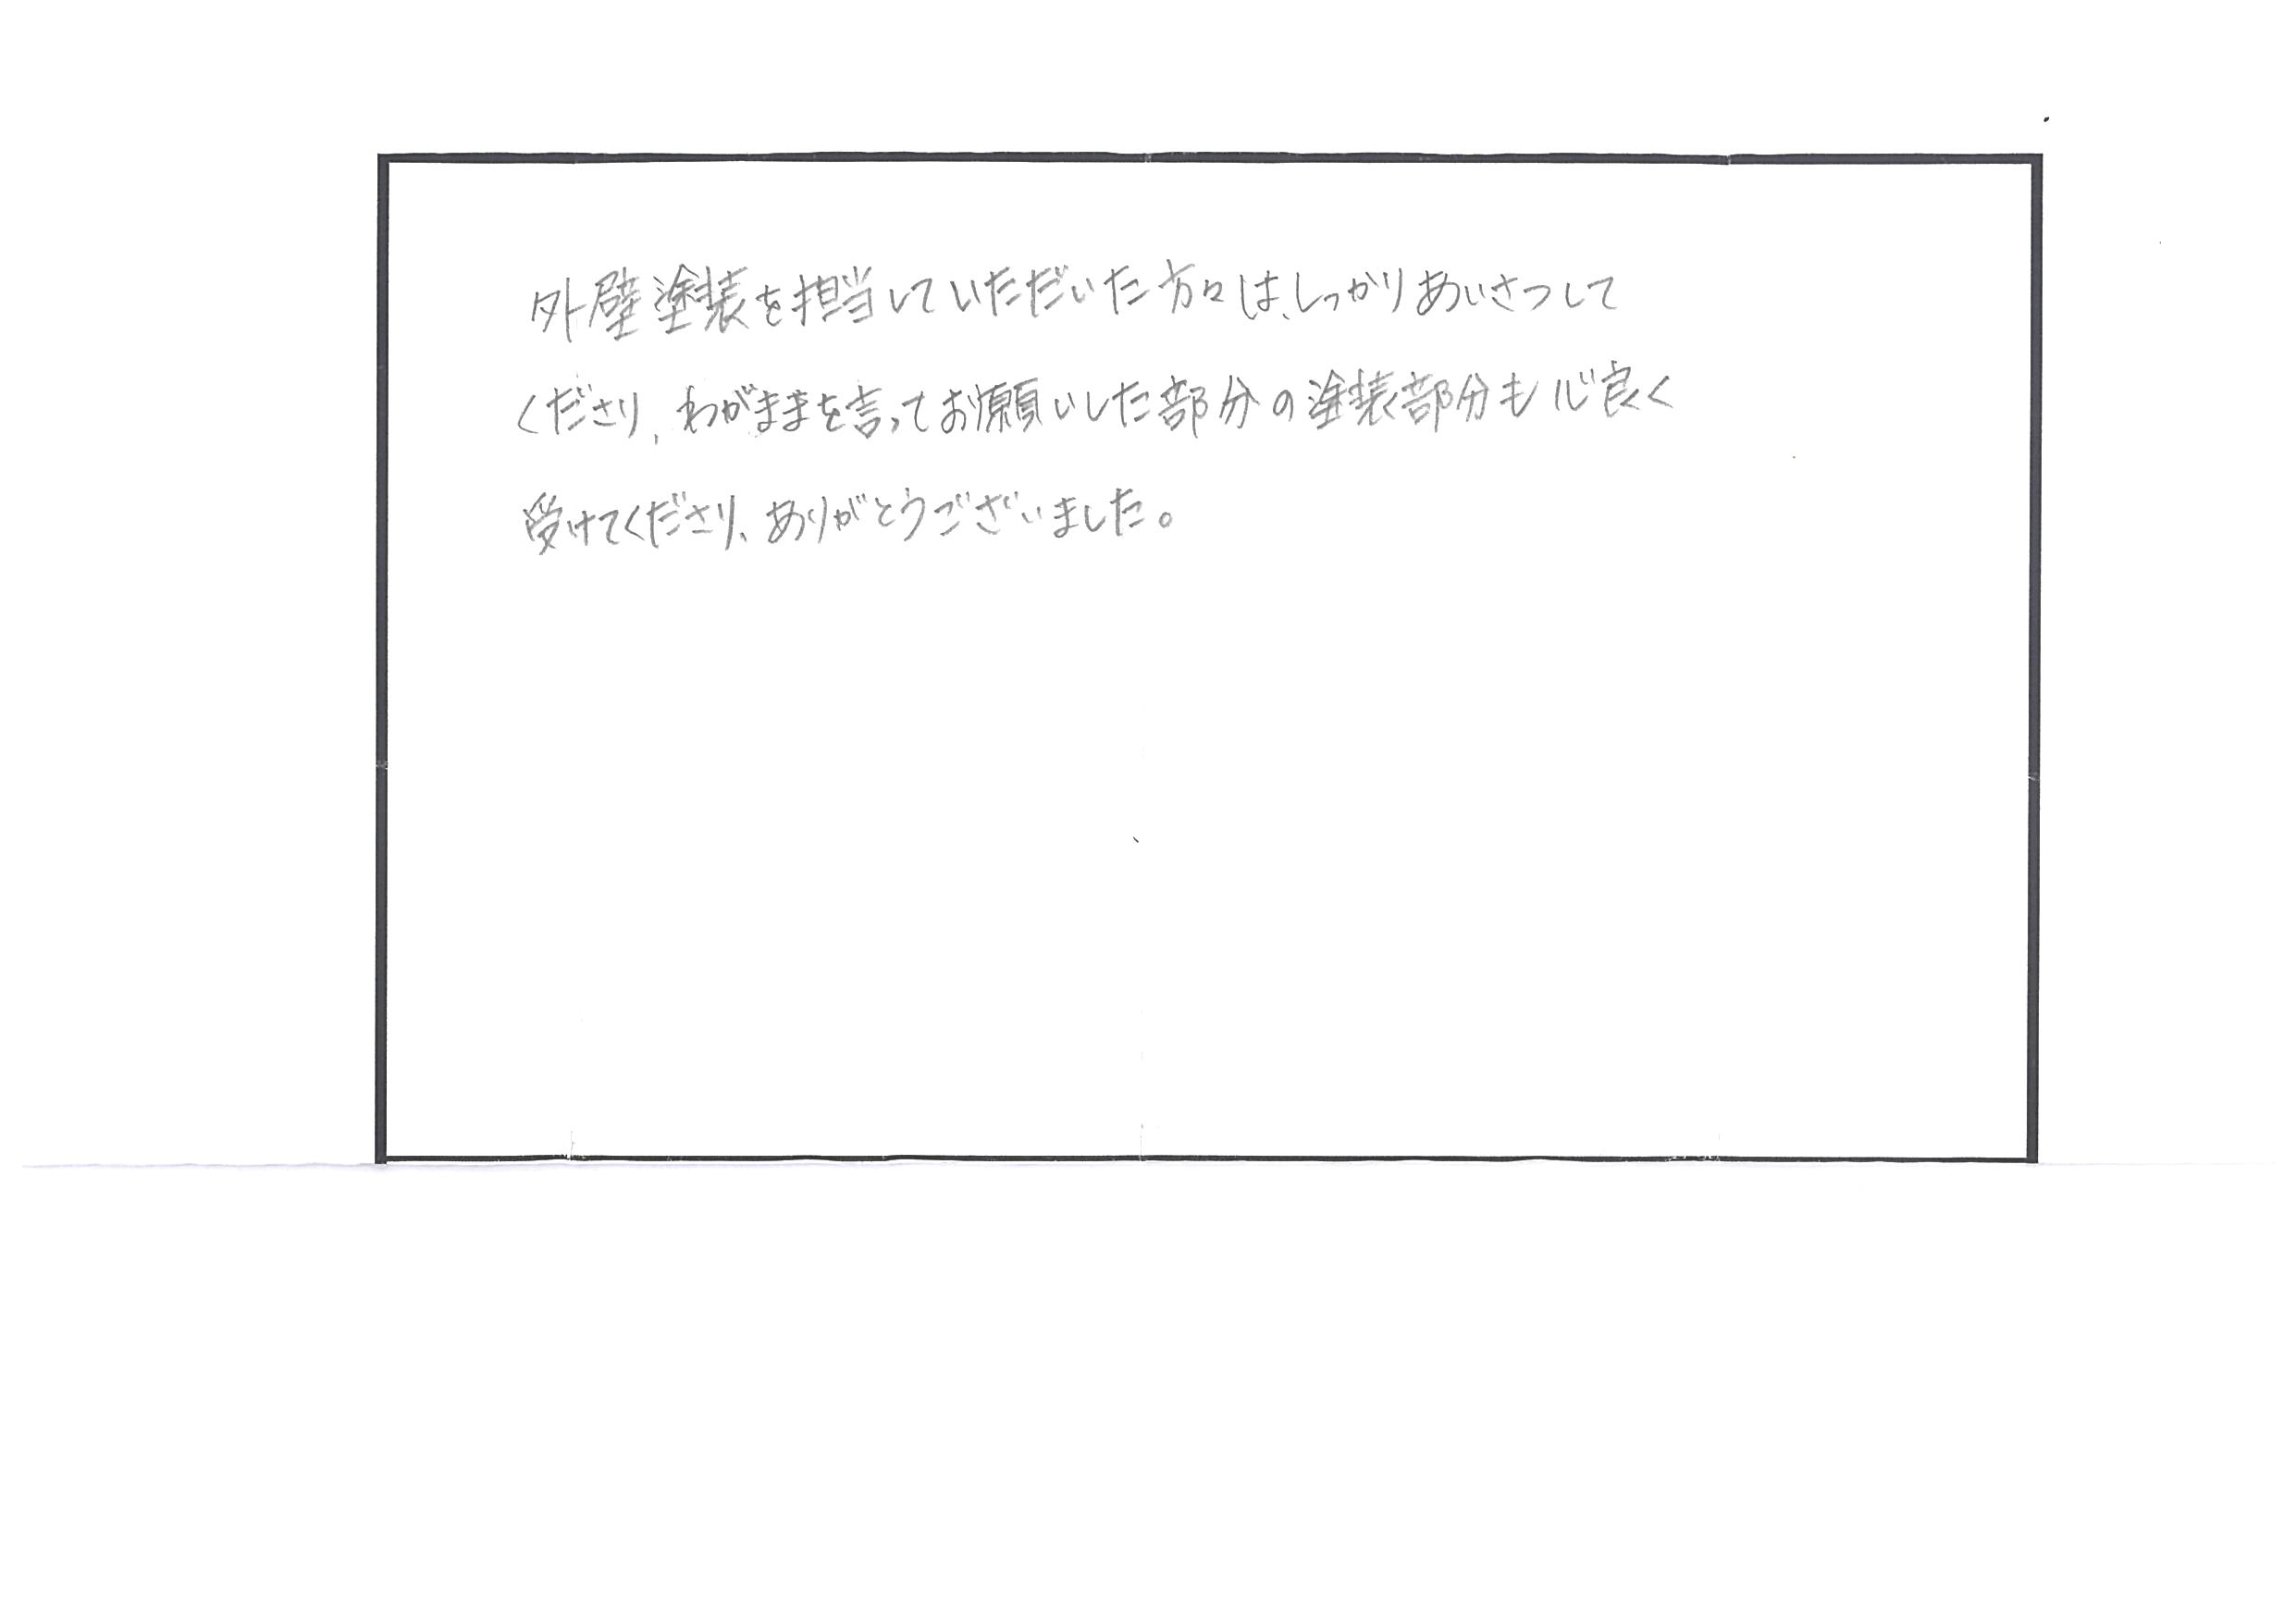 外壁塗装を担当していただいた方々は、しっかりあいさつして
くださり、わがままを言ってお願いした部分の塗装部分も心良く
受けてくださり、ありがとうございました。